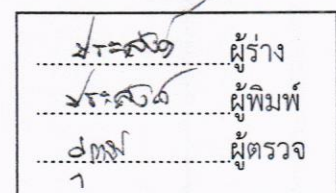 ประสงค์ ผู้ร่าง
ประสงค์ ผู้พิมพ์
ผู้ตรวจ